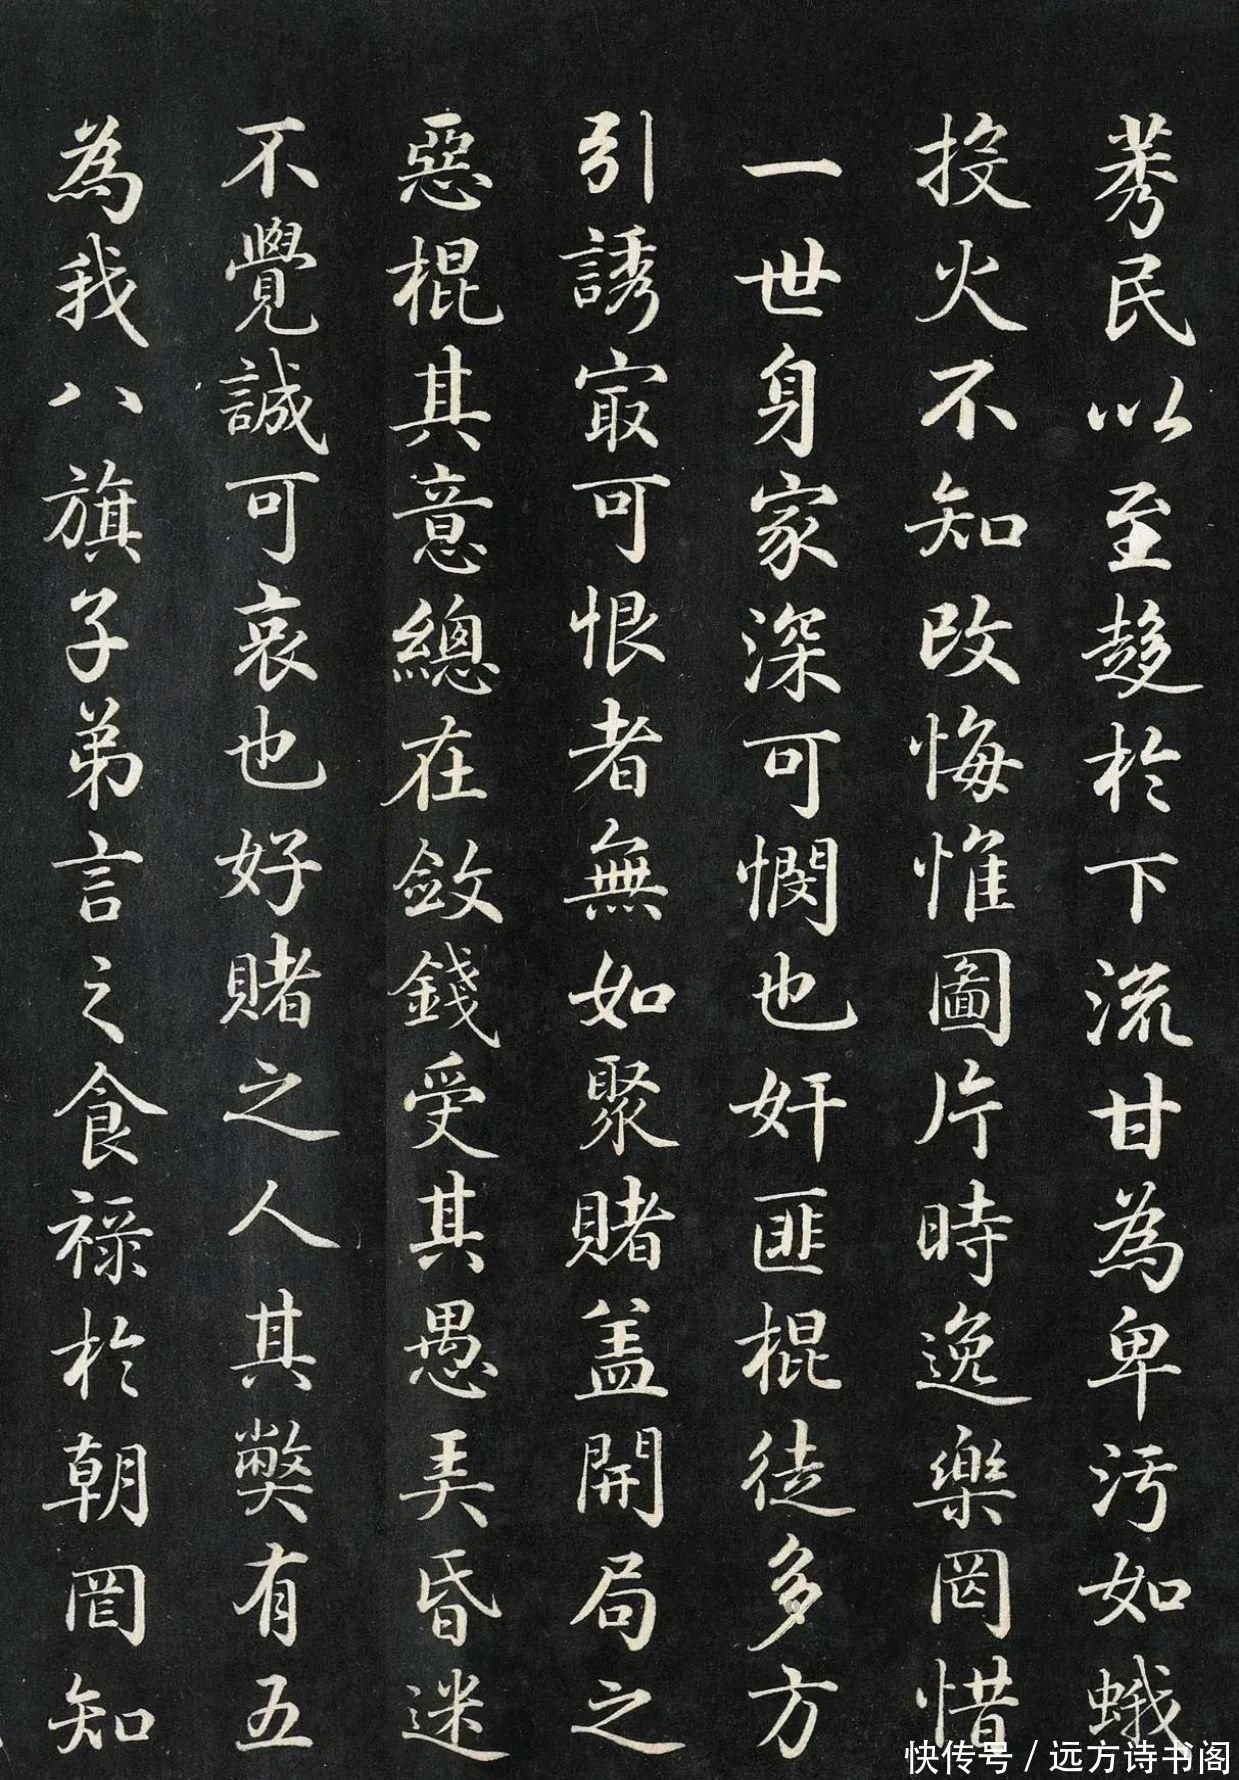 莠民以至趍於下流甘為卑污如蛾
投火不知改悔惟圖片時逸樂罔惜
一世身家深可憫也奸匪棍徒多方
引誘冣可恨者無如聚賭盖開局之
惡棍其意總在斂錢受其愚弄昏迷
不覺誠可哀也好賭之人其獘有五
為我八旗子弟言之食祿於朝罔知
快传号／远方诗书阁